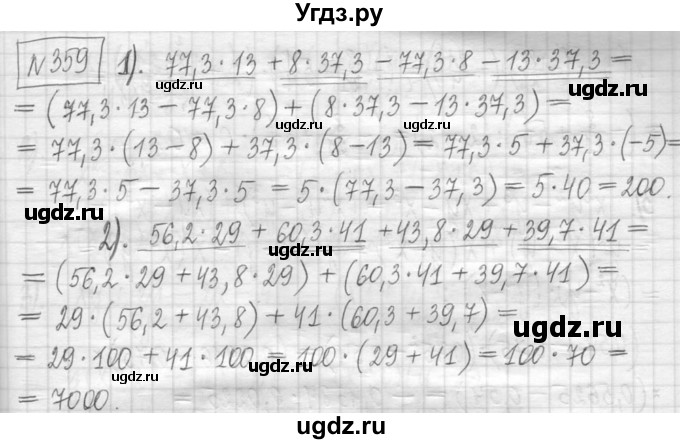 Угдз.ру
№359 1). 77,3·13 + 8·37,3 − 77,3·8 − 13·37,3 =
ugdz.ru ugdz.ru
= (77,3·13 − 77,3·8) + (8·37,3 − 13·37,3) =
ugdz.ru
= 77,3·(13−8) + 37,3·(8−13) = 77,3·5 + 37,3·(−5) =
ugdz.ru
= 77,3·5 − 37,3·5 = 5·(77,3 − 37,3) = 5·40 = 200.
ugdz.ru ugdz.ru
2). 56,2·29 + 60,3·41 + 43,8·29 + 39,7·41 =
ugdz.ru
= (56,2·29 + 43,8·29) + (60,3·41 + 39,7·41) =
= 29·(56,2 + 43,8) + 41·(60,3 + 39,7) =
ugdz.ru
= 29·100 + 41·100 = 100·(29 + 41) = 100·70 =
ugdz.ru ugdz.ru
= 7000.
ugdz.ru